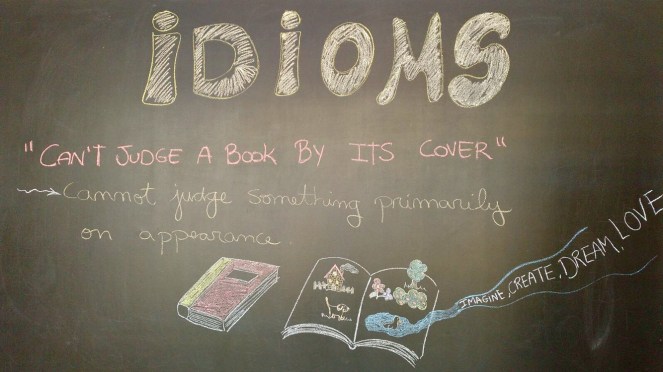 iDiOMS
"CAN'T JUDGE A BOOK BY ITS COVER"
Cannot judge something primarily
on appearance.
IMAGINE, CREATE, DREAM, LOVE